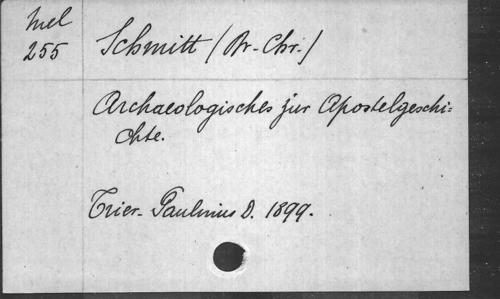 Mel
255
Schmitt (Dr. Chr.)
Archaeologisches zur Apostelgeschi=
chte.
Trier. Paulinus D. 1899.